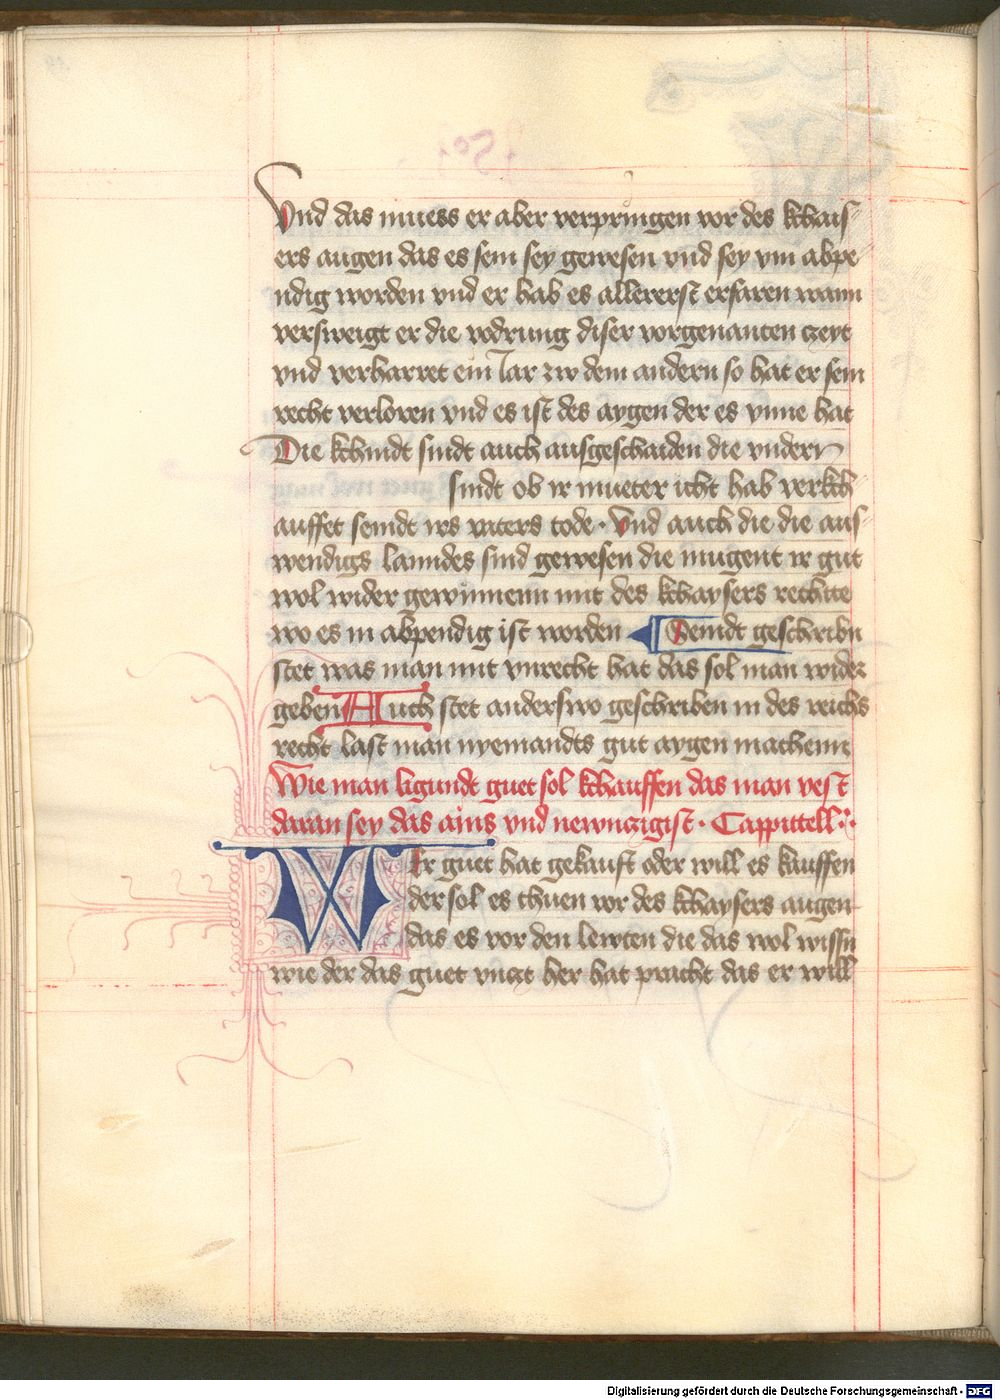 Vnd das muess er aber verpringen vor des kchais
ers augen das es sein sey gewesen vnd sey vm abpe
ndig worden vnd er hab es allererst erfaren wann
versweigt er die vodrung diser vorgenanten czeyt
vnd verharret ein Iar zw dem andern so hat er sein
recht verloren vnd es ist des aygen der es ynne hat
Die kchindt sindt auch ausgeschaiden die vndern
sindt ob ir mueter icht hab verkch
auffet seindt irs vaters tode · Vnd auch die die aus
wendigs lanndes sind gewesen die mugent ir gut
wol wider gewinnenn mit des kchaysers rechtte
wo es in abpendig ist worden Seindt geschribn
stet was man mit vnrecht hat das sol man wider
geben Auch stet anderswo geschriben in des reichs
recht last man nyemandts gut aygen machenn
Wie man ligundt guet sol kchauffen das man vest
daran sey das ains vnd newnzigist · Cappittell
WEr guet hat gekauft oder will es kauffen
der sol es thuen vor des kchaysers augen
das es vor den lewten die das wol wissn
wie der das guet vnczt her hat pracht das er will
Digitalisierung gefördert durch die Deutsche Forschungsgemeinschaft - DFG